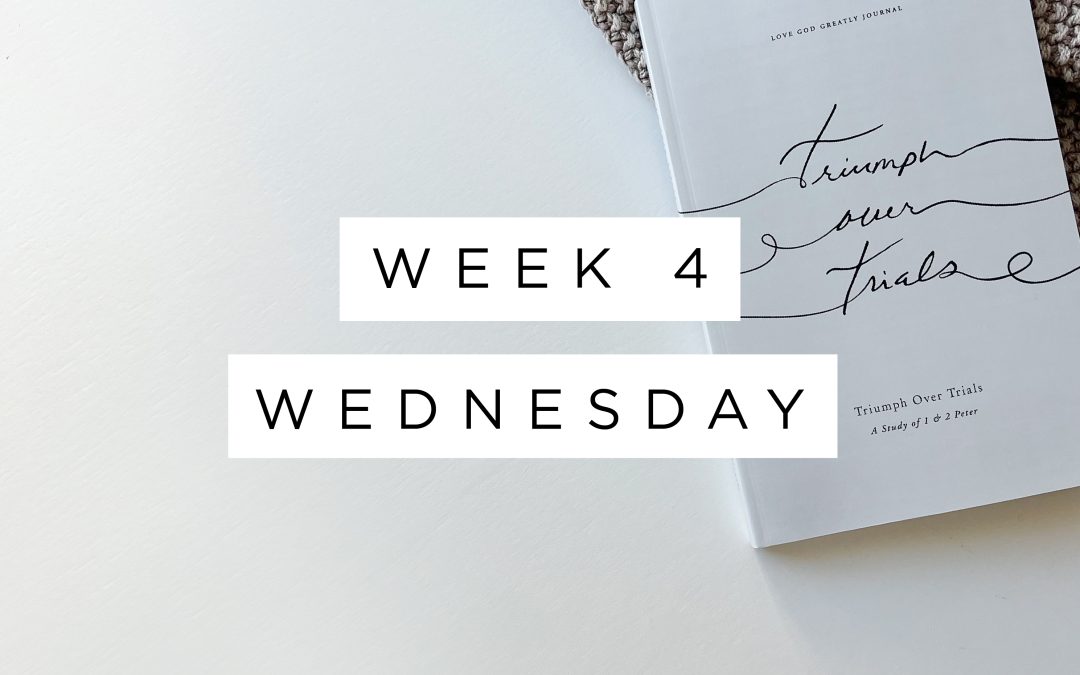 LOVE GOD GREATLY JOURNAL
Triumph
over
Trials
WEEK 4
WEDNESDAY
Triumph Over Trials
A Study of 1 & 2 Peter